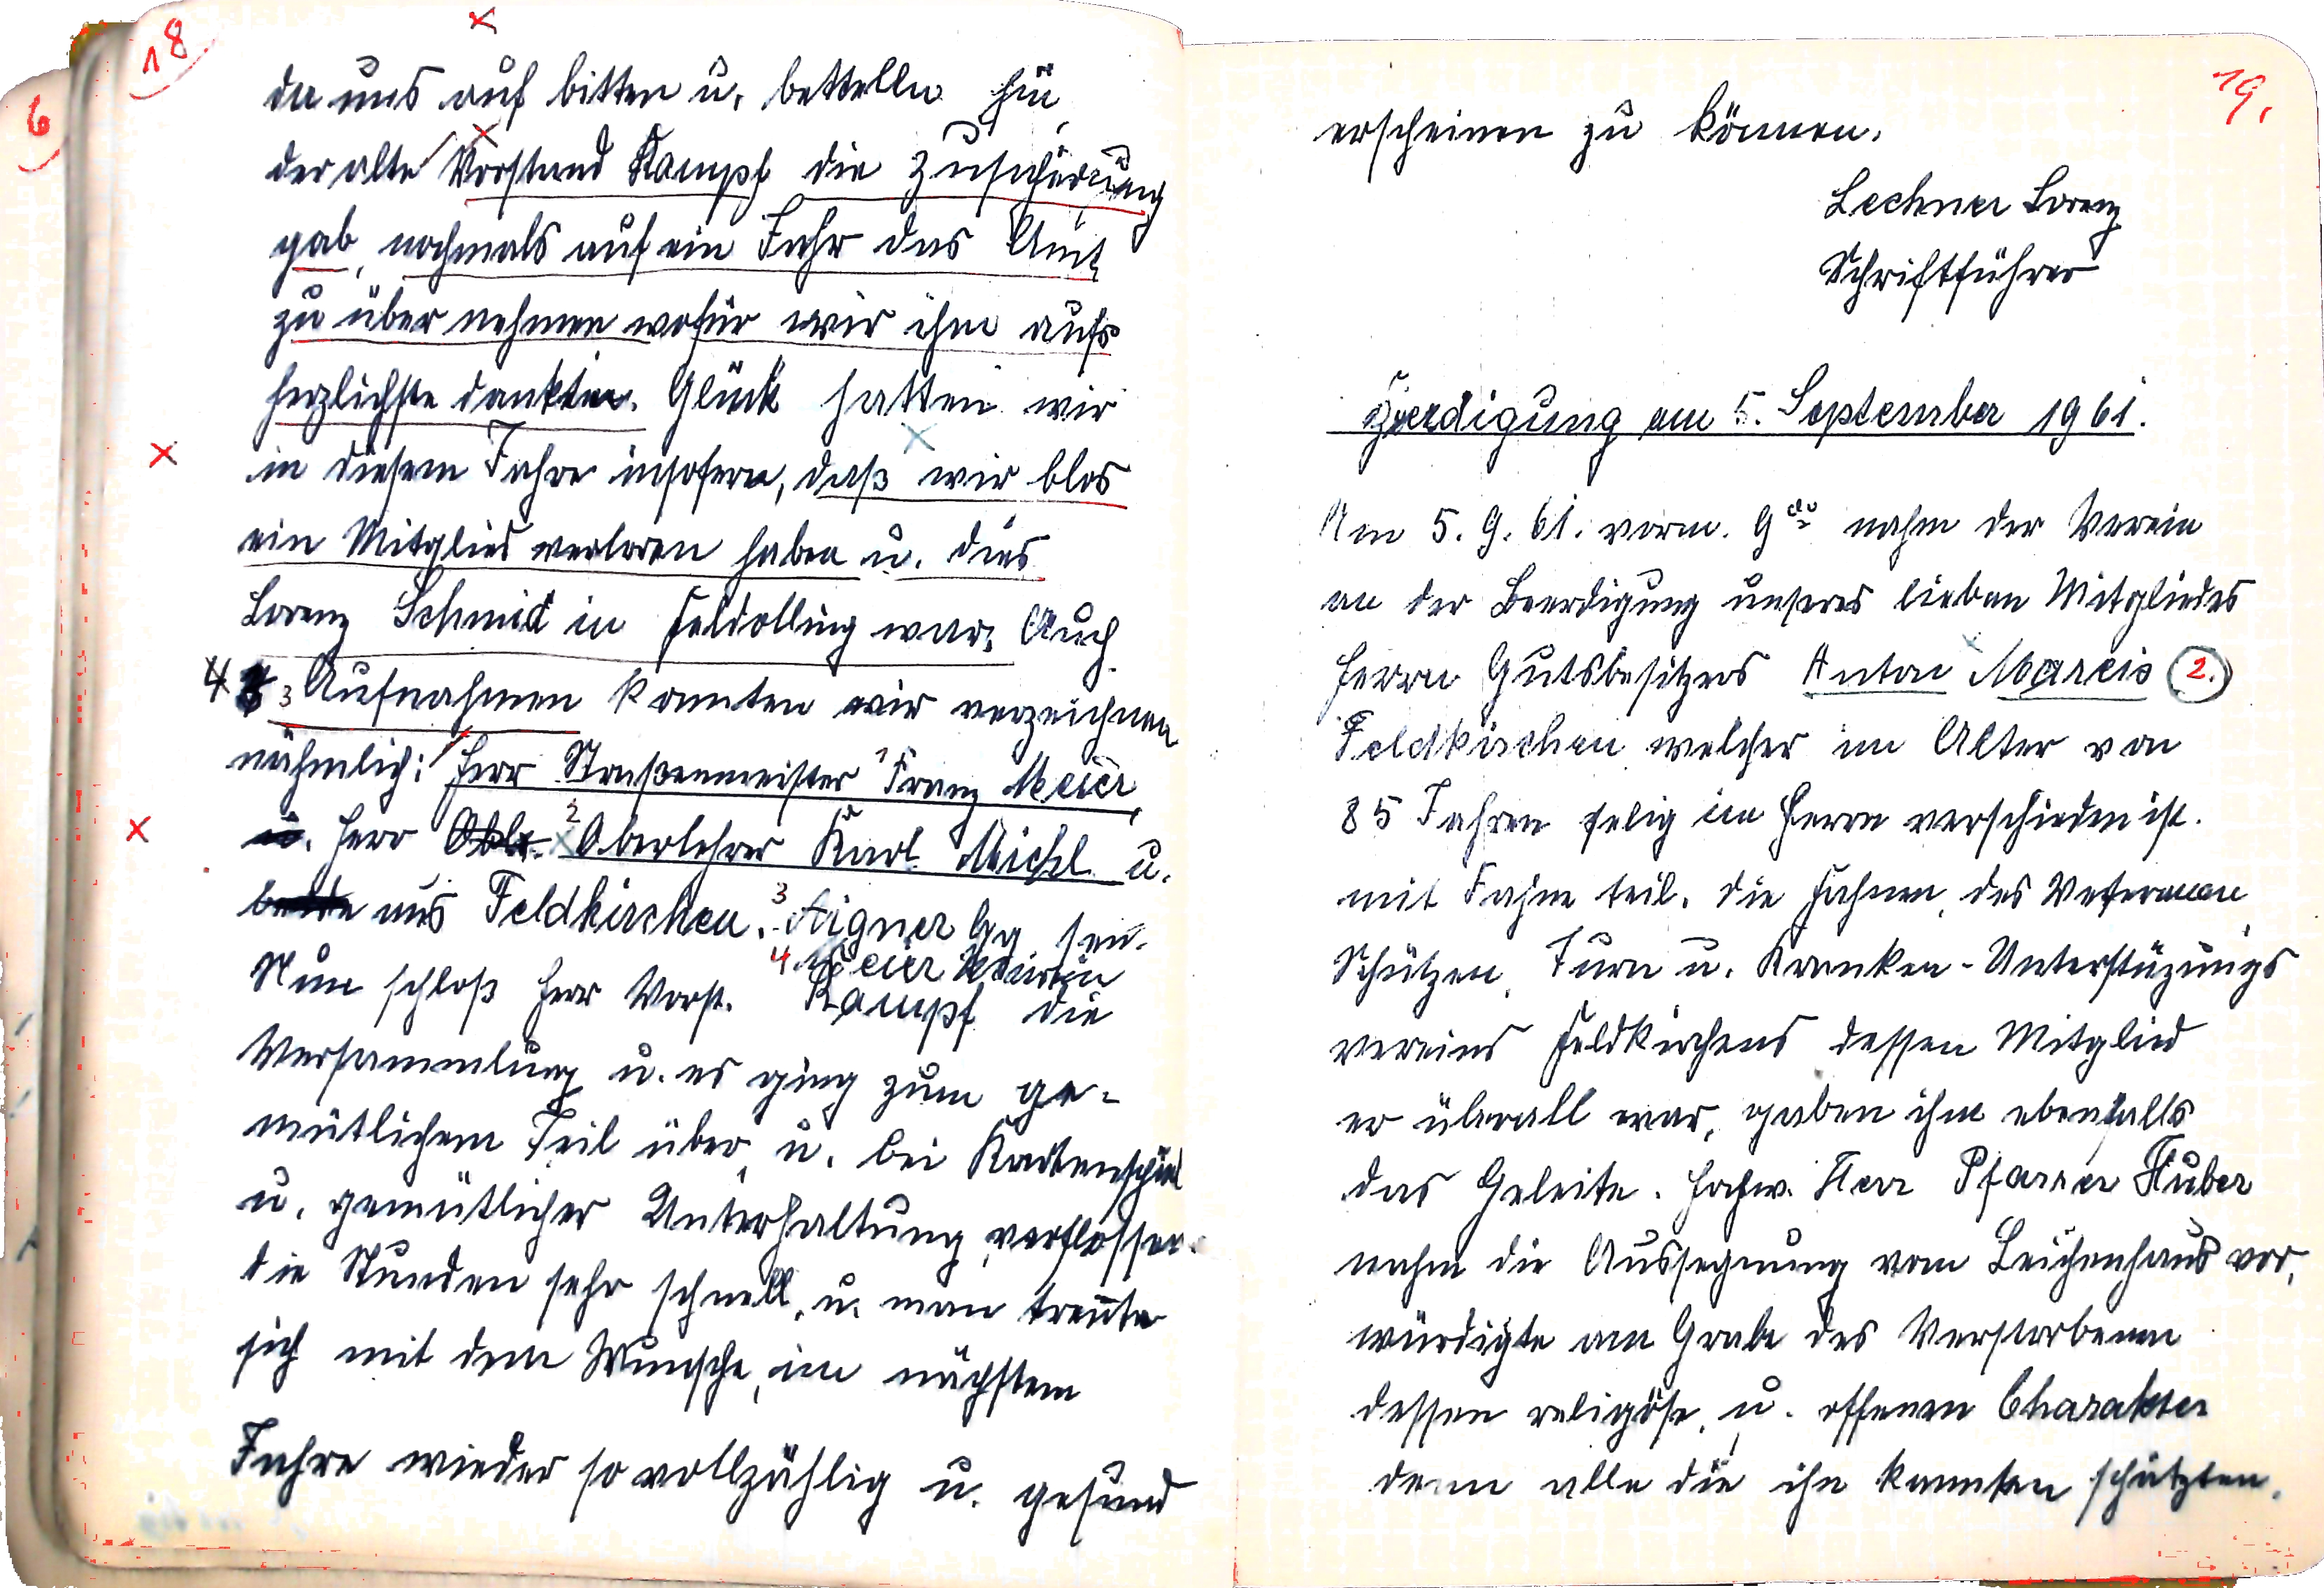 18
6
da uns auf bitten u. betteln hin
der alte Vorstand Kampf die Zusicherung
gab, nochmals auf ein Jahr das Amt
zu über nehmen wofür wir ihm aufs
herzlichste dankten. Glück hatten wir
in diesem Jahre insofern, daß wir blos
ein Mitglied verloren haben u. dies
Lorenz Schmid in Feldolling war. Auch
4 3 Aufnahmen konnten wir verzeichnen
nähmlich: Herr Straßenmeister 1 Franz Meier
u. Herr Oblr. 2 Oberlehrer Karl Michl u.
beide aus Feldkirchen. 3 Aigner Gg. sen.
4 Meier Martin
Nun schloß Herr Vorst. Kampf die
Versammlung u. es ging zum ge-
mütlichem Teil über u. bei Kartenspiel
u. gemütlicher Unterhaltung verflossen
die Stunden sehr schnell, u. man trennte
sich mit dem Wunsche, im nächstem
Jahre wieder so vollzählig u. gesund
19.
erscheinen zu können.
Lechner Lorenz
Schriftführer
Beerdigung am 5. September 1961.
Am 5. 9. 61. vorm. 9 nahm der Verein
an der Beerdigung unseres lieben Mitgliedes
Herrn Gutsbesitzers Anton Mareis 2.
Feldkirchen welcher im Alter von
85 Jahren selig im Herrn verschieden ist.
mit Fahne teil. Die Fahnen, des Veteranen
Schützen, Turn u. Kranken-Unterstüzungs
vereins Feldkirchens dessen Mitglied
er überall war, gaben ihm ebenfalls
das Geleite. Hochw. Herr Pfarrer Huber
nahm die Aussegnung vom Leichenhaus vor,
würdigte am Grabe des Verstorbenen
dessen religöse, u. offenen Charakter
denn alle die ihn kannten schätzten.